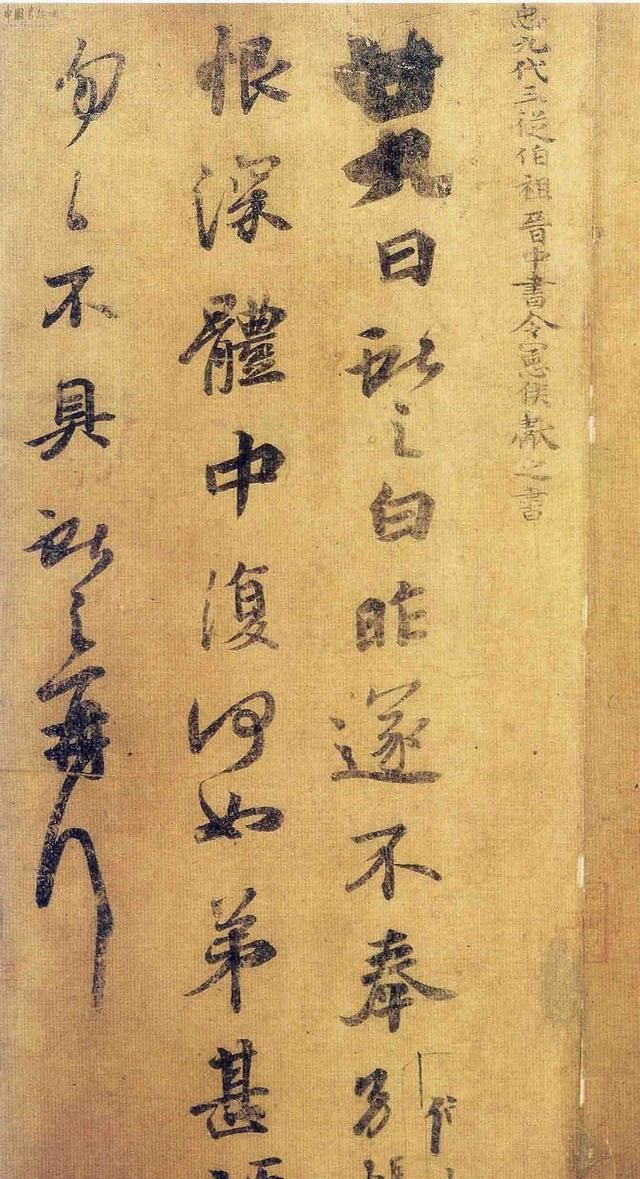 九代三從伯祖晉中書令憲侯獻之書
廿九日獻之白昨遂不奉別
恨深體中復何如弟甚
匆々不具獻之再拜